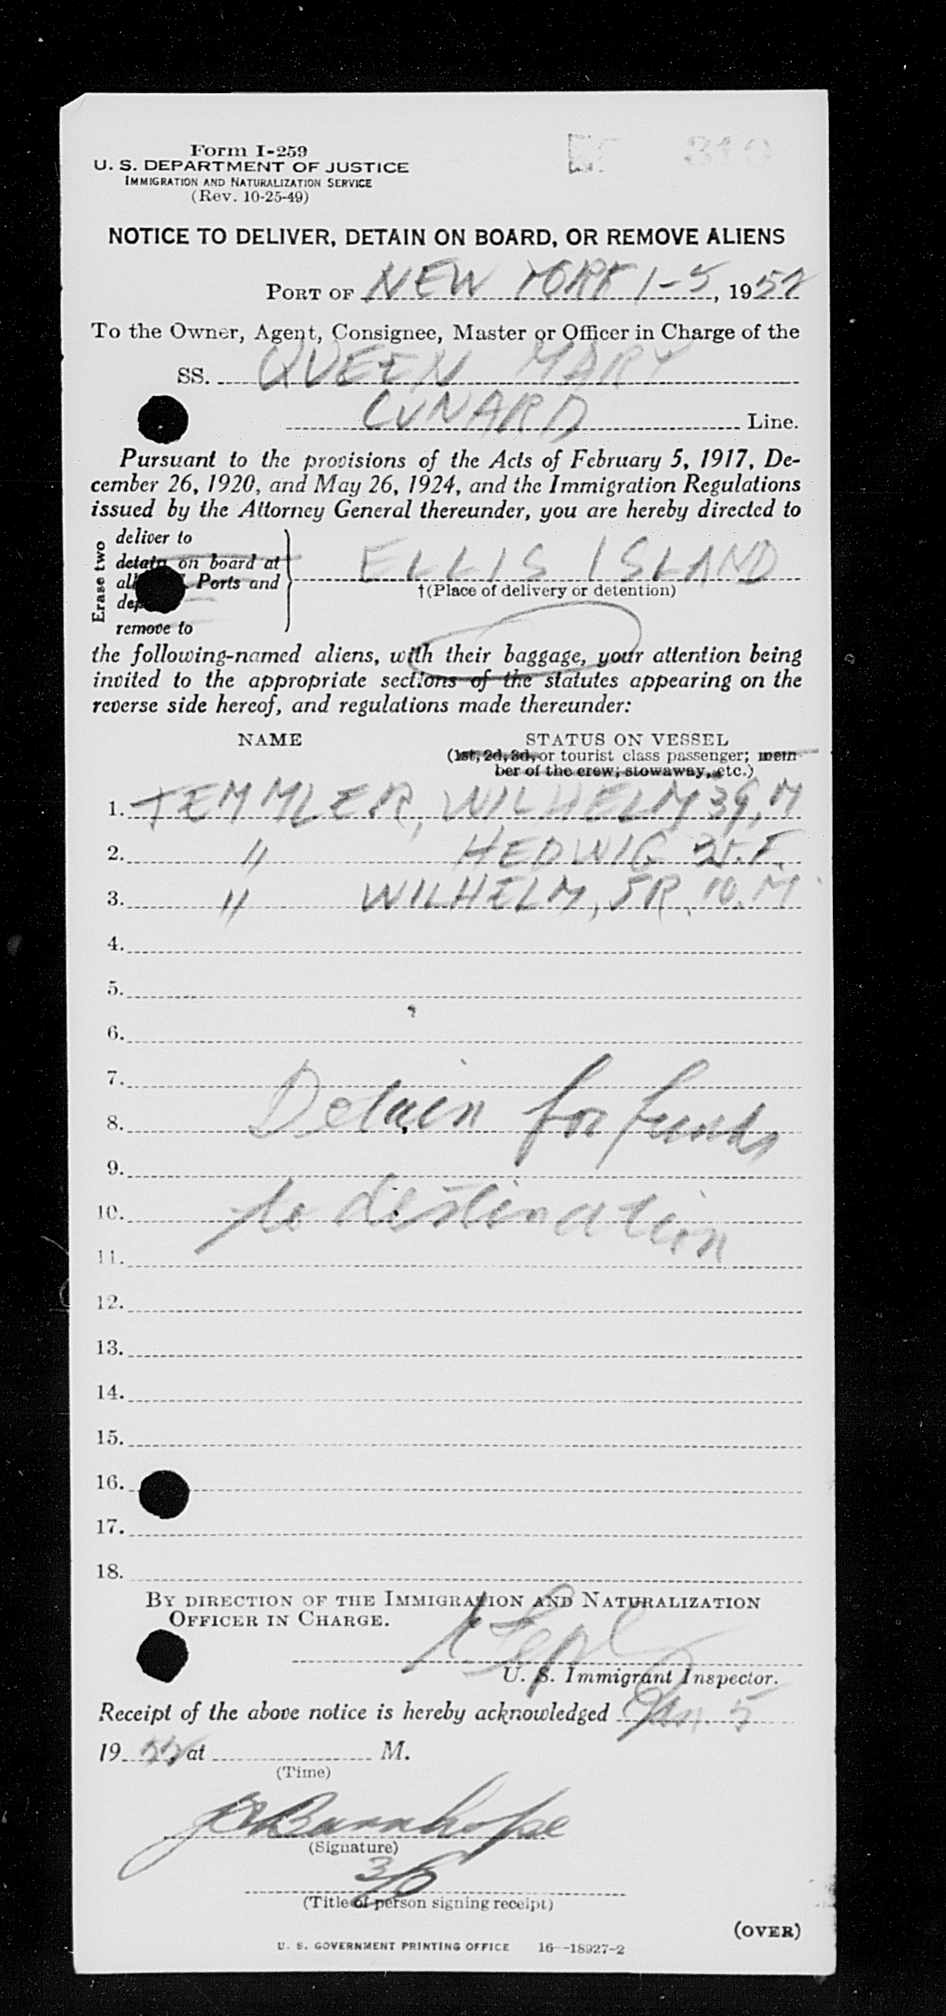 Form I-259
U. S. DEPARTMENT OF JUSTICE
IMMIGRATION AND NATURALIZATION SERVICE
(Rev. 10-25-49)
NOTICE TO DELIVER, DETAIN ON BOARD, OR REMOVE ALIENS
PORT OF NEW YORK 1-5, 1952
To the Owner, Agent, Consignee, Master or Officer in Charge of the
SS. QUEEN MARY
CUNARD Line.
Pursuant to the provisions of the Acts of February 5, 1917, De-
cember 26, 1920, and May 26, 1924, and the Immigration Regulations
issued by the Attorney General thereunder, you are hereby directed to
Erase two
deliver to
detain on board at
Ports and
remove to
ELLIS ISLAND
†(Place of delivery or detention)
the following-named aliens, with their baggage, your attention being
invited to the appropriate sections of the statutes appearing on the
reverse side hereof, and regulations made thereunder:
NAME STATUS ON VESSEL
(1st, 2d, 3d, or tourist class passenger; mem-
ber of the crew; stowaway, etc.)
1. TEMMLER, WILHELM 39, M
2. " HEDWIG F.
3. " WILHELM, JR. 10. M
4.
5.
6.
7.
8. Detain for funds
9.
10. to destination
11.
12.
13.
14.
15.
16.
17.
18.
BY DIRECTION OF THE IMMIGRATION AND NATURALIZATION
OFFICER IN CHARGE.
U. S. Immigrant Inspector.
Receipt of the above notice is hereby acknowledged Jan. 5
19 52 at M.
(Time)
(Signature)
3/0
(Title of person signing receipt)
(OVER)
U. S. GOVERNMENT PRINTING OFFICE 16—18927-2